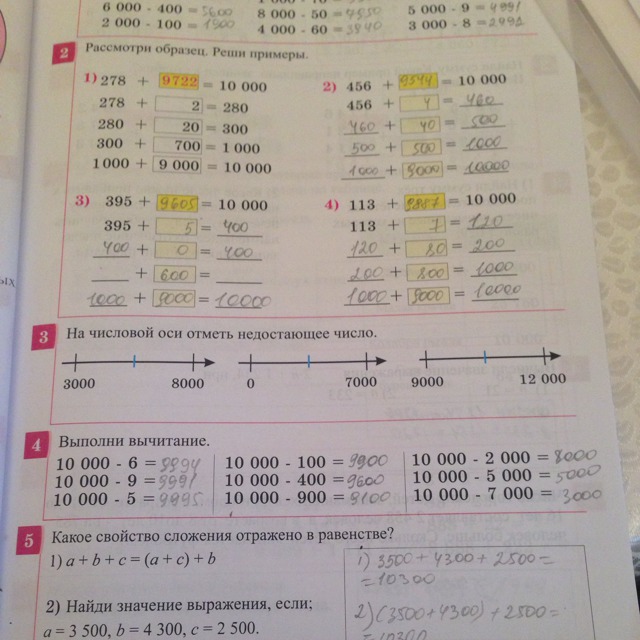 6 000 - 400 = 5600
2 000 - 100 = 1900
8 000 - 50 = 7950
4 000 - 60 = 3940
5 000 - 9 = 4991
3 000 - 8 = 2992
2 Рассмотри образец. Реши примеры.
1) 278 + 9722 = 10 000
278 + 2 = 280
280 + 20 = 300
300 + 700 = 1 000
1 000 + 9 000 = 10 000
2) 456 + 9544 = 10 000
456 + 4 = 460
460 + 40 = 500
500 + 500 = 1000
1000 + 9000 = 10000
3) 395 + 9605 = 10 000
395 + 5 = 400
400 + 0 = 400
+ 600 =
1000 + 9000 = 10000
4) 113 + 9887 = 10 000
113 + 7 = 120
120 + 80 = 200
200 + 800 = 1000
1000 + 9000 = 10000
3 На числовой оси отметь недостающее число.
3000 8000
0 7000
9000 12 000
4 Выполни вычитание.
10 000 - 6 = 9994
10 000 - 9 = 9991
10 000 - 5 = 9995
10 000 - 100 = 9900
10 000 - 400 = 9600
10 000 - 900 = 9100
10 000 - 2 000 = 8000
10 000 - 5 000 = 5000
10 000 - 7 000 = 3000
5 Какое свойство сложения отражено в равенстве?
1) a + b + c = (a + c) + b
2) Найди значение выражения, если;
a = 3 500, b = 4 300, c = 2 500.
1) 3500 + 4300 + 2500 =
= 10300
2) (3500 + 4300) + 2500 =
= 10300